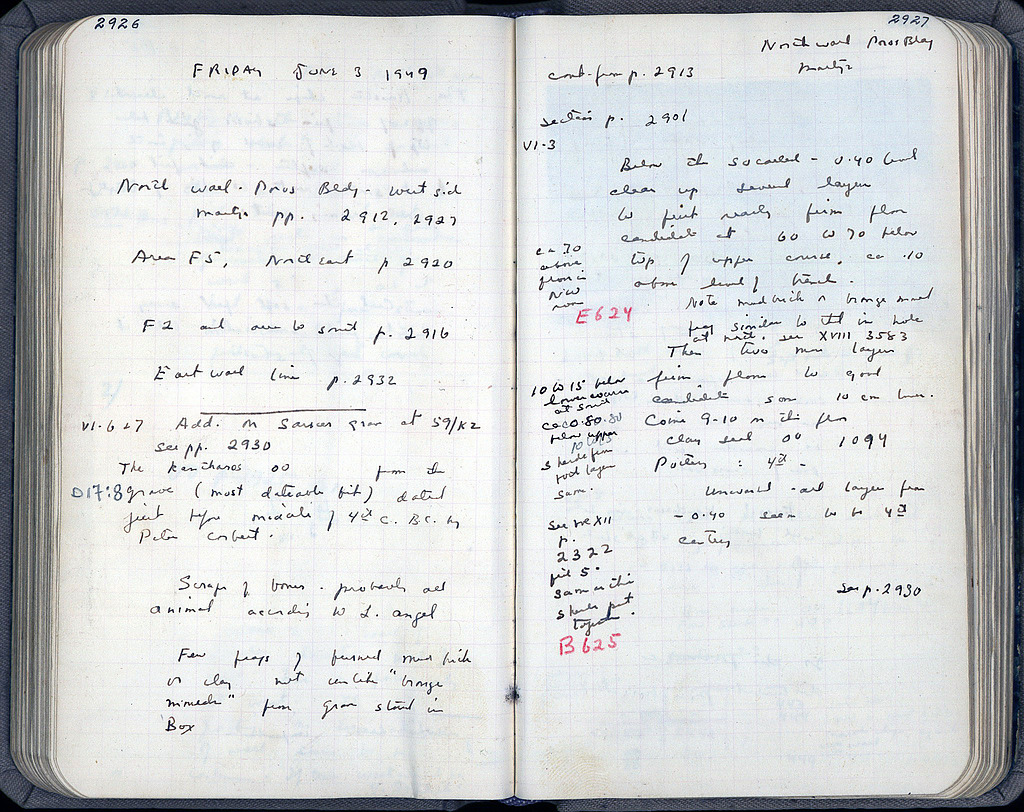 2926
FRIDAY JUNE 3 1949
North wall - Poros Bldg - west side
Martyr pp. 2912, 2927
Area F5, North east p 2920
F2 and area to south p. 2916
East wall line p. 2932
VI-6 + 7 Add. on grave at 59/KZ
see pp. 2930
The Kantharos oo from the
D17:8 grave (most dateable bit) dated
just before middle of 4th c. B.C. by
Peter Corbett.
Scraps of bones - probably all
animal according to L. Angel
Few frags of burned mud brick
or clay not unlike "bronze
" from grave stored in
Box
2927
North wall Poros Bldg
cont. from p. 2913
section p. 2901
VI-3
Below the so called - 0.40 level
clean up several layers
to first really firm floor
candidate at 60 to 70 below
top of upper course, ca .10
above level of trench.
ca 70
above
floor in
NW
room
E624
Note mud brick or bronze mould
frag similar to that in hole
at north. see XVIII 3583
Then two more layers
firm floor to good
candidate some 10 cm lower.
Coins 9-10 on this floor
clay seal oo 1094
Pottery : 4th -
10 to 15 below
lower course
at south
ca 0.80
below upper
sherds from
pool layer
same.
Uncovered - all layers from
- 0.40 seem to be 4th
century
see XII
p.
2322
fill 5.
same as this
sherds put
together.
B625
see p. 2930